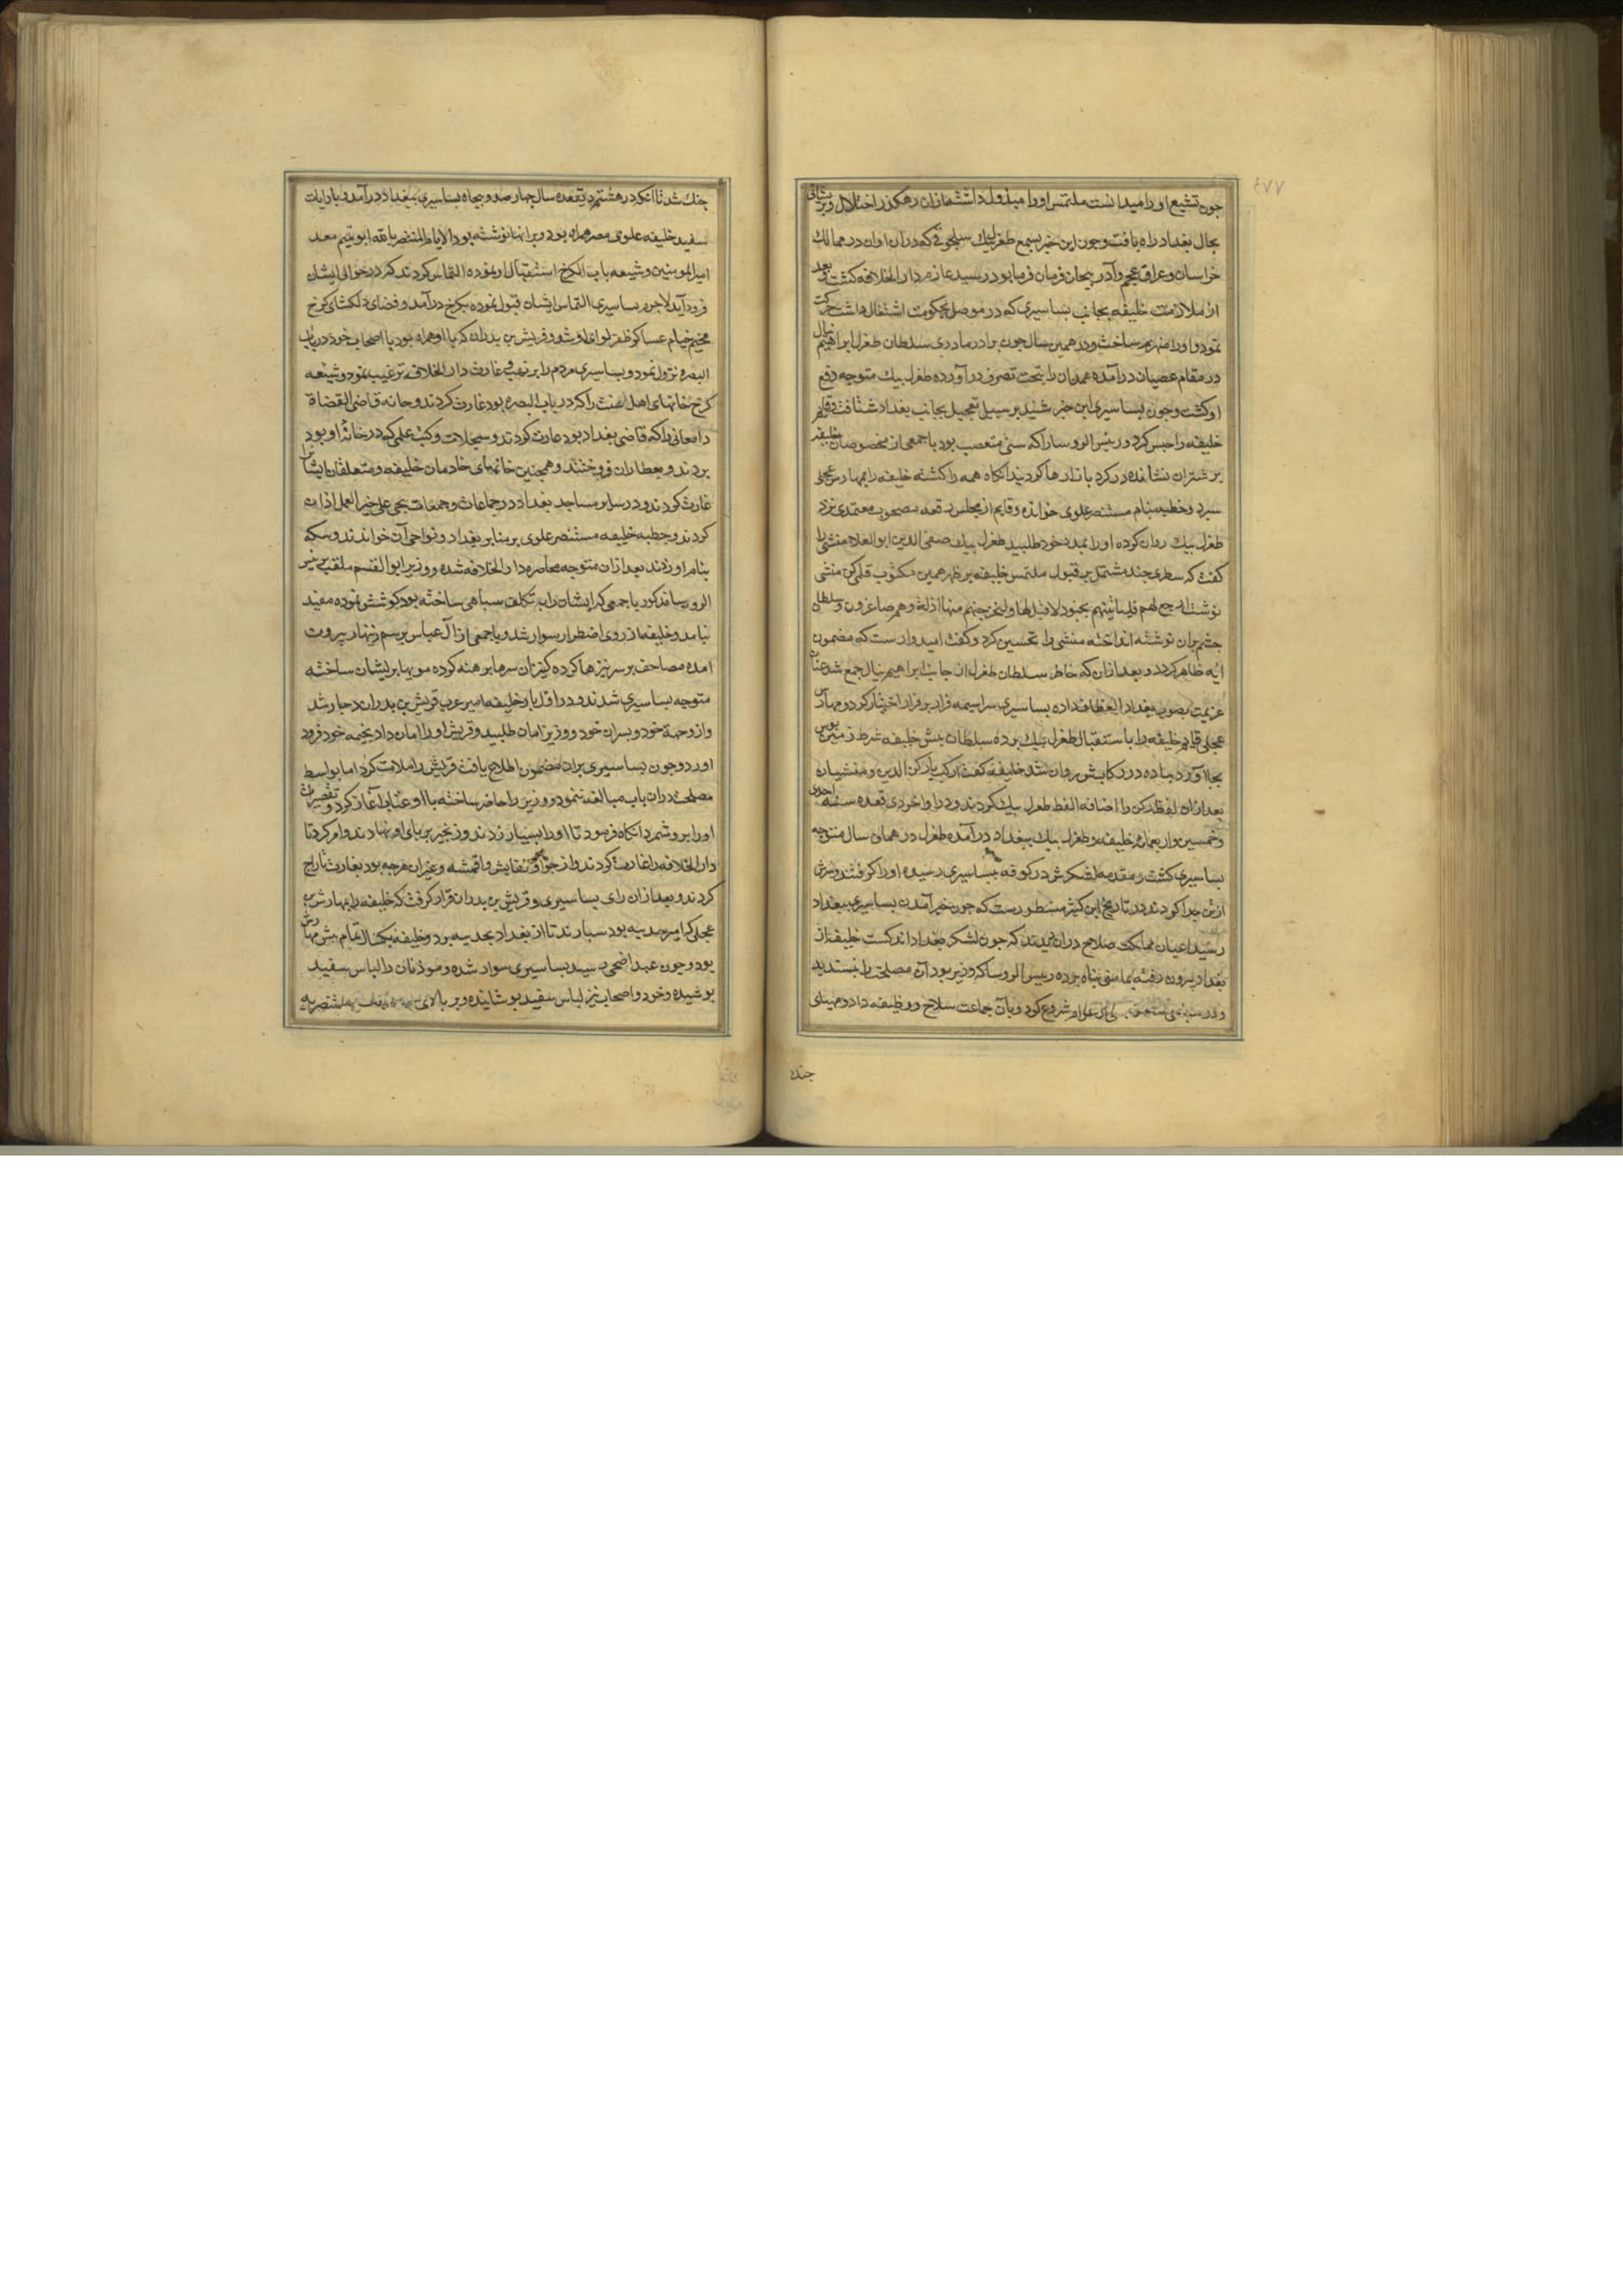 ٤٧٧
چون تشیع او را میدانست ملتمس او را مبذول داشت ازان رهکذر اختلال و پریشانی
بحال بغداد راه یافت و چون این خبر بسمع طغرل بیك سلجوقی که دران اوان در ممالك
خراسان و عراق عجم و آذربیجان فرمان فرما بود رسید عازم دار الخلافه کشت و بعد
از ملازمت خلیفه بجانب بساسیری که در موصل بحکومت اشتغال داشت حرکت
نمود و او را منهزم ساخت و در همین سال چون برادر مادری سلطان طغرل ابراهیم نیال
در مقام عصیان درآمده همدان را بتحت تصرف درآورده طغرل بیك متوجه دفع
او کشت و چون بساسیری این خبر شنید بر سبیل تعجیل بجانب بغداد شتافت و قایم
خلیفه را حبس کرد و رئیس الروسا را که سنی متعصب بود با جمعی از مخصوصان خلیفه
بر شتران نشانده در کرد بازارها کردانید آنکاه همه را کشته خلیفه را بمهارش عجلی
سپرد و خطبه بنام مستنصر علوی خوانده و قایم از مجلس رقعه مصحوب معتمدی نزد
طغرل بیك روان کرده او را بمدد خود طلبید طغرل بیك صفی الدین ابو العلاء منشی را
کفت که سطری چند مشتمل بر قبول ملتمس خلیفه بر ظهر همین مکتوب قلمی کن منشی
نوشت ارجع الیهم فلناتینهم بجنود لا قبل لهم بها ولنخرجنهم منها اذلة وهم صاغرون و سلطان
چشم بران نوشته انداخته منشی را تحسین کرد و کفت امیدوارست که مضمون
آیه ظاهر کردد و بعد ازان که خاطر سلطان طغرل از جانب ابراهیم نیال جمع شد عنان
عزیمت بصوب بغداد انعطاف داده بساسیری سراسیمه فرار بر قرار اختیار کرد و مهارش
عجلی قایم خلیفه را باستقبال طغرل بیك برده سلطان پیش خلیفه شرط زمین بوس
بجا آورد پیاده در رکابش روان شد خلیفه کفت ارکب یا رکن الدین و منشیان
بعد ازان لفظ رکن را اضافه لفظ طغرل بیك کردند و در اواخر ذی قعده سنه احدی
و خمسین و اربعمائه خلیفه و طغرل بیك ببغداد درآمده طغرل در همان سال متوجه
بساسیری کشت و مقدمه لشکرش در کوفه ببساسیری رسیده او را کرفتند و سرش
از تن جدا کردند در تاریخ ابن کثیر مسطورست که چون خبر آمدن بساسیری ببغداد
رسید اعیان مملکت صلاح دران دیدند که چون لشکر بغداد اندکست خلیفه از
بغداد بیرون رفته بمامنی پناه برده رییس الروسا که وزیر بود آن مصلحت را نپسندید
شروع کرد و بآن جماعت سلاح و وظیفه داد و مهیای
جنك
جنك شد تا آنکه در هشتم ذیقعده سال چهارصد و پنجاه بساسیری ببغداد درآمد و با رایات
سفید خلیفه علوی مصر همراه بود و برانها نوشته بود الامام المستنصر بالله ابو تمیم معد
امیر المومنین و شیعه باب الکرخ استقبال او نموده التماس کردند که در حوالی ایشان
فرود آید لاجرم بساسیری التماس ایشان قبول نموده بکرخ درآمد و فضای دلکشای کرخ
مخیم خیام عساکر ظفر لوای او شد و قریش بن بدران که با او همراه بود با اصحاب خود در باب
البصره نزول نمود و بساسیری مردم را بر نهب و غارت دار الخلافه ترغیب نمود و شیعه
کرخ خانهای اهل سنت را که در باب البصره بود غارت کردند و خانه قاضی القضاة
دامغانی را که قاضی بغداد بود غارت کردند و سجلات و کتب علمی که در خانه او بود
بردند و بعطاران فروختند و همچنین خانهای خادمان خلیفه و متعلقان ایشان را
غارت کردند و در سایر مساجد بغداد در جماعات و جمعات بحی علی خیر العمل اذان
کردند و خطبه خلیفه مستنصر علوی بر منابر بغداد و نواحی آن خواندند و سکه
بنام او زدند بعد ازان متوجه محاصره دار الخلافه شده و وزیر ابو القسم ملقب برئیس
الروسا مذکور با جمعی که ایشان را به تکلف سپاهی ساخته بود کوشش نموده مفید
نیامد و خلیفه از روی اضطرار سوار شد و با جمعی از آل عباس برسم زنهار بیرون
آمده مصاحف بر سر نیزها کرده کنیزان سرها برهنه کرده مویها پریشان ساخته
متوجه بساسیری شدند و در اول بار خلیفه امیر عرب قریش بن بدران دچار شد
و از وجهة خود و پسران خود و وزیر امان طلبید و قریش او را امان داد بخیمه خود فرود
آورد و چون بساسیری بران مضمون اطلاع یافت قریش را ملامت کرد اما بواسطه
مصلحت دران باب مبالغه ننمود و وزیر را حاضر ساخته با او عتابها آغاز کرد و تقصیرات
او را بر وشمرد آنکاه فرمود تا او را بسیار زدند و زنجیر بر پای او نهادند و امر کرد تا
دار الخلافه را غارت کردند و از جواهر و نفایس و اقمشه و غیران هرچه بود بغارت تاراج
کردند و بعد ازان رای بساسیری و قریش بن بدران قرار کرفت که خلیفه را بمهارش بن
عجلی که امیر حدیثه بود سپارند تا از بغداد بحدیثه برد و خلیفه یکسال تمام پیش مهارش
بود و چون عید اضحی رسید بساسیری سوار شده و موذنان را لباس سفید
پوشیده و خود و اصحاب نیز لباس سفید پوشانیده و بر بالای مستنصریه